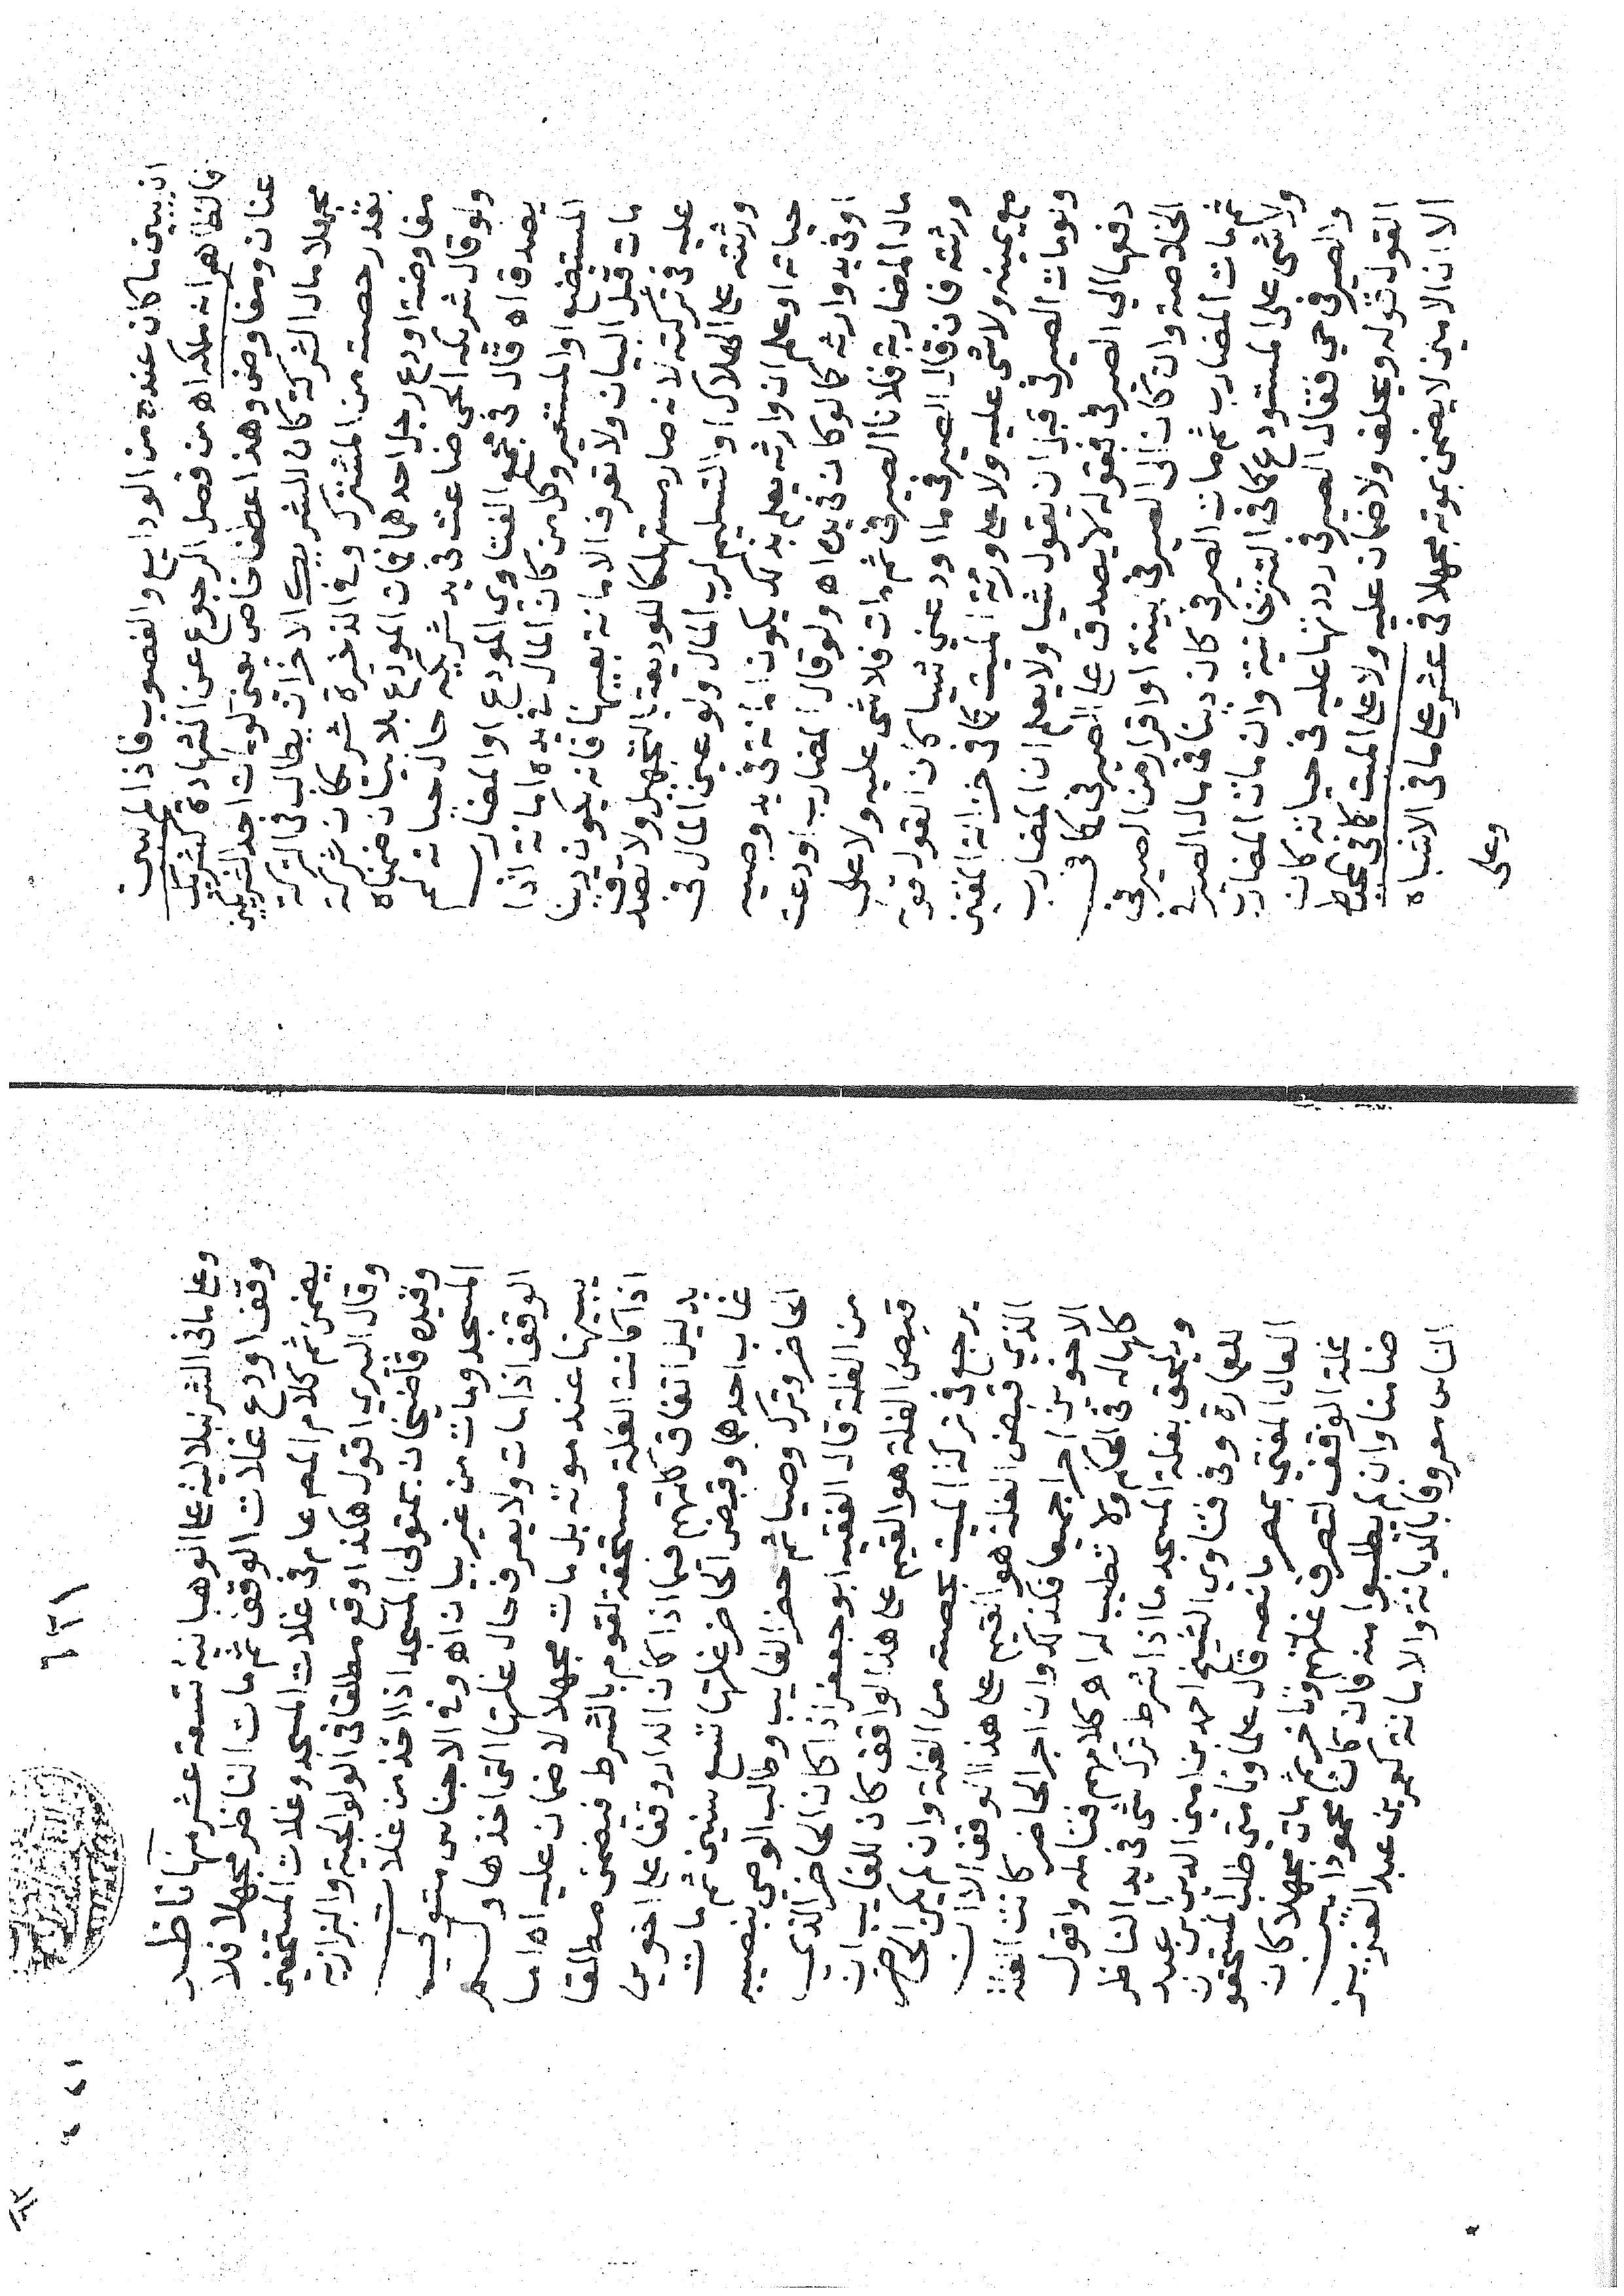 ان يبين ما كان عنده من الودايع والغصوب فاذا لم يبين
فالظاهر انه ملكه اه من فصل الرجوع عن الشهادة كشريك
عنان ومفاوض وهذا عطف خاص يعني لو مات احد الشريكين
مجهلا مال الشركة كان للشريك الاخر ان يطالب في التركة
بقدر حصته من المشترك وفي الذخيرة شريكان شركة
مفاوضة اودع رجل احدهما فمات المودع بلا بيان ضمناه
ولو قال شريكه الحي ضاعت في يد شريكه حال حياته لم
يصدق اه قال في مجمع الفتاوى المودع او المضارب
المستبضع او المستعير وكل من كان المال في يده امانة اذا
مات قبل البيان ولا تعرف الامانة بعينها فانه يكون دينا
عليه في تركته لانه صار مستهلكا للوديعة بالتجهيل ولا تصدق
ورثته على الهلاك او التسليم لرب المال ولو عين المال في
حياته او علم ان وارثه يعلم بذلك يكون امانة في يد وصيه
او في يد وارثه كما لو كان في يده اه ولو قال المضارب اودعت
مال المضاربة فلانا الصيرفي ثم مات فلا شى عليه ولا على
ورثته فان قال الصيرفي ما اودعني شيا كان القول قوله
مع يمينه ولا شى عليه ولا على ورثة الميت كما في خزانة المفتين
ولو مات الصيرفي قبل ان يقول شيا ولا يعلم ان المضارب
دفعها الى الصيرفي فقوله لا يصدق على الصيرفي كما في
الخلاصة وان كان الى الصيرفي ببينة او اقرار من الصيرفي
ثم مات المضارب ثم مات الصيرفي كان دينا في مال الصيرفي
ولا شى على المستودع كما في التترخانية وان مات المضارب
والصيرفي حي فقال الصيرفي رددتها عليه في حياته كان
القول قوله ويحلف ولا ضمان عليه ولا على الميت كما في المحيط
الا ان الامين لا يضمن بموته مجهلا في عشر على ما في الاشباه
وعلى
١٢٦
وعلى ما في الشرنبلالية على الوهبانية تسعة عشر منها ناظر
وقف اودع غلات الوقف ثم مات الناظر مجهلا فلا
يضمن ثم كلام المص عام في غلات المسجد وغلات المستحقين
وقال البيري اقول هكذا وقع مطلقا في الولوالجية والبزازية
وقيده قاضيخان بمتولي المسجد اذا اخذ من غلات
المسجد ومات من غير بيان اه وفي الاجناس متولي
الوقف اذا مات ولا يعرف حال غلتها التي اخذها ولم
يبينها عند موته بل مات مجهلا لا ضمان عليه اه اما
اذا كانت الغلة مستحقة لقوم بالشرط فيضمن مطلقا
بدليل اتفاق كلمتهم فيما اذا كان الدار وقفا على اخوين
غاب احدهما وقبض الحاضر غلتها تسع سنين ثم مات
الحاضر وترك وصيا ثم حضر الغايب وطالب الوصي بنصيبه
من الغلة قال الفقيه ابو جعفر اذا كان الحاضر الذي
قبض الغلة هو القيم على هذا الوقف كان للغايب ان
يرجع في تركة الميت بحصته من الغلة وان لم يكن الحاضر
الذي قبض الغلة هو القيم على هذا الوقف الا ان
الاخوين اجرا جميعا فكذلك وان اجر الحاضر كانت الغلة
كلها له في الحكم ولا تطيب له اه كلامهم فتامله واقول
ويلحق بغلة المسجد ما اذا شرط ترك شى في يد الناظر
للعمارة وفي فتاوي الشيخ احمد بن امين الدين بن عبد
العال المفتي بمصر ما نصه قال علماونا متى طلب المستحقون
غلة الوقف لتصرف غلتهم وتاخر ثم مات مجهلا كان
ضامنا وان لم يطلبوا منه فان كان محمودا بين
الناس معروفا بالديانة والامانة كعمر بن عبد العزيز